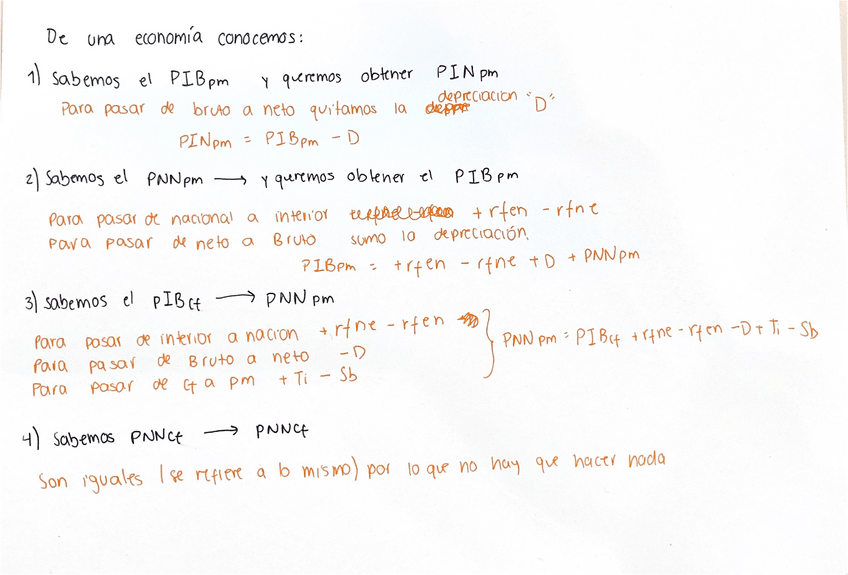 De una economía conocemos:
1) Sabemos el PIBpm y queremos obtener PINpm
Para pasar de bruto a neto quitamos la depreciacion "D"
PINpm = PIBpm - D
2) Sabemos el PNNpm → y queremos obtener el PIBpm
Para pasar de nacional a interior + rfen - rfne
Para pasar de neto a Bruto sumo la depreciación.
PIBpm = +rfen - rfne + D + PNNpm
3) sabemos el PIBcf → PNNpm
Para pasar de interior a nacion + rfne - rfen
Para pasar de Bruto a neto - D
Para pasar de cf a pm + Ti - Sb
PNNpm = PIBcf + rfne - rfen - D + Ti - Sb
4) Sabemos PNNcf → PNNcf
Son iguales (se refiere a lo mismo) por lo que no hay que hacer nada